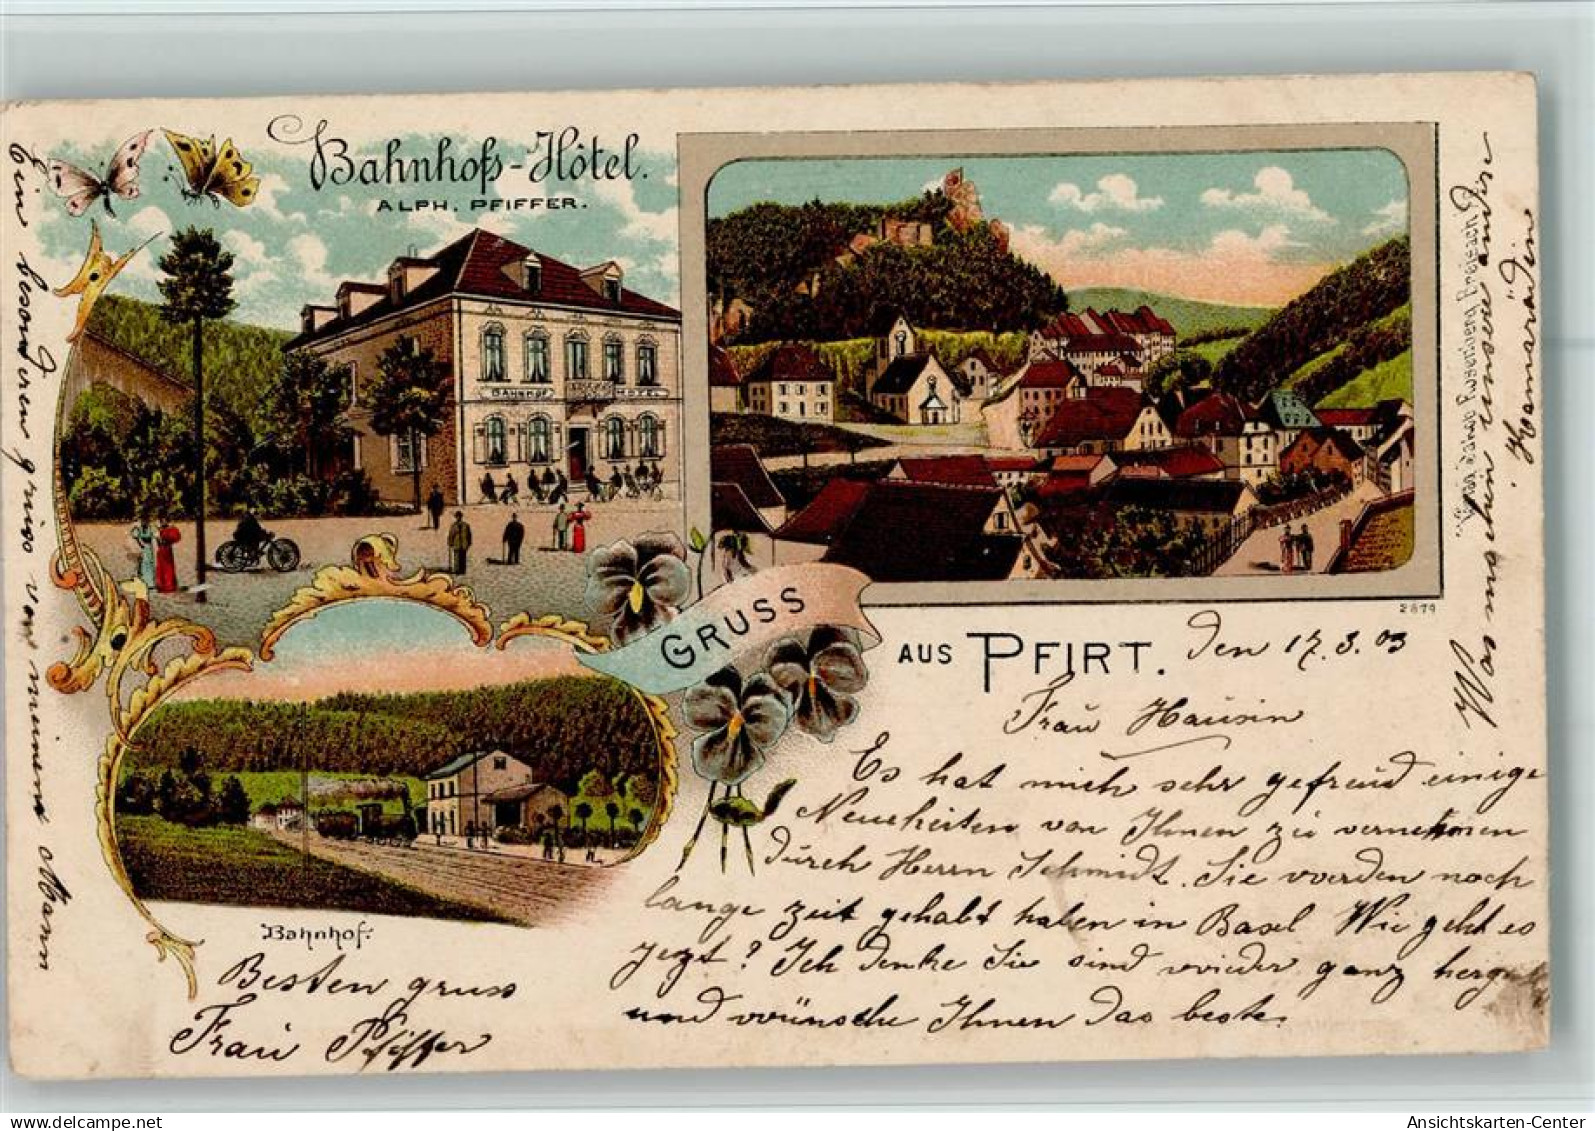 Bahnhofs-Hôtel.
ALPH. PFIFFER.
BAHNHOF HOTEL
GRUSS
AUS PFIRT.
Bahnhof.
2879
den 17.3.03
Frau Hausin
Es hat mich sehr gefreud einige
Neuheiten von Ihnen zu vernehmen
durch Herrn Schmidt. Sie werden noch
lange zeit gehabt haben in Basel Wie geht es
jezt? Ich denke Sie sind wieder ganz
und wünsche Ihnen das beste.
Besten gruss
Frau Pfiffer
Ein besonderen gruss von meinem Mann
Kamarädin